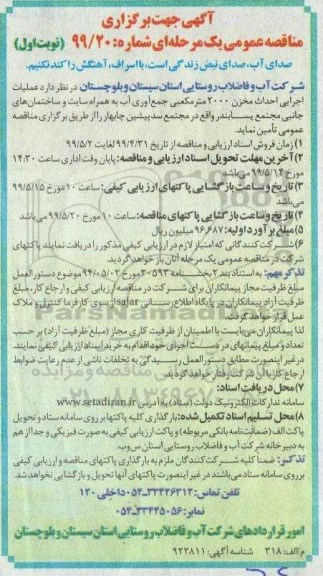 آگهی جهت برگزاری
مناقصه عمومی یک مرحله‌ای شماره: ۹۹/۲۰ (نوبت اول)
صدای آب، صدای نبض زندگی است، با اسراف، آهنگش را کند نکنیم.
شرکت آب و فاضلاب روستایی استان سیستان و بلوچستان در نظر دارد عملیات
اجرایی احداث مخزن ۲۰۰۰ مترمکعبی جمع‌آوری آب به همراه سایت و ساختمان‌های
جانبی مجتمع پسابندر واقع در مجتمع سد پیشین چابهار را از طریق برگزاری مناقصه
عمومی تأمین نماید.
۱) زمان فروش اسناد ارزیابی و مناقصه از تاریخ ۹۹/۴/۳۱ لغایت ۹۹/۵/۲
۲) آخرین مهلت تحویل اسناد ارزیابی و مناقصه: پایان وقت اداری ساعت ۱۴:۳۰
مورخ ۹۹/۵/۱۴ می‌باشد
۳) تاریخ و ساعت بازگشایی پاکتهای ارزیابی کیفی: ساعت ۱۰ مورخ ۹۹/۵/۱۵
می‌باشد
۴) تاریخ و ساعت بازگشایی پاکتهای مناقصه: ساعت ۱۰ مورخ ۹۹/۵/۲۰ می‌باشد
۵) مبلغ برآورد اولیه: ۹۶,۶۸۷ میلیون ریال
۶) شرکت‌کنندگانی که امتیاز لازم در ارزیابی کیفی مذکور را دریافت نمایند پاکتهای
شرکت در مناقصه عمومی یک مرحله آنان باز خواهد گردید.
تذکر مهم: به استناد بند ۲ بخشنامه ۳۰۵۹۳ مورخ ۹۴/۰۵/۰۳ موضوع دستورالعمل
مبلغ ظرفیت مجاز پیمانکاران برای شرکت در مناقصه ارزیابی کیفی و ارجاع کار، مبلغ
ظرفیت آزاد پیمانکاران در پایگاه اطلاع رسانی sajar از سوی کارفرما کنترل و ملاک
عمل قرار خواهد گرفت.
لذا پیمانکاران می‌بایست با اطمینان از ظرفیت کاری مجاز (مبلغ ظرفیت آزاد) بر حسب
تعداد و مبلغ پیمانهای در دست اجرای خود اقدام به خرید اسناد ارزیابی کیفی نمایند.
در غیر اینصورت مطابق دستورالعمل رسیدگی به تخلفات ناشی از عدم رعایت ضوابط
ارجاع کار با آن شرکت رفتار خواهد گردید.
۷) محل دریافت اسناد:
سامانه تدارکات الکترونیک دولت (ستاد) به آدرس www.setadiran.ir
۸) محل تسلیم اسناد تکمیل شده: بارگذاری کلیه پاکتها بر روی سامانه ستاد و تحویل
پاکت الف (ضمانت‌نامه بانکی مربوطه) و پاکت ارزیابی کیفی به صورت فیزیکی و جدا از هم
به دبیرخانه شرکت آب و فاضلاب روستایی استان س‌وب.
تذکر: ضمناً کلیه شرکت‌کنندگان ملزم به بارگذاری پاکتهای مناقصه و ارزیابی کیفی
بر روی سامانه ستاد می‌باشند در غیر اینصورت پاکتهای آنها تحویل و بازگشایی نخواهد شد.
تلفن تماس: ۳۳۴۴۶۳۱۲-۰۵۴ داخلی ۱۲۰
نمابر: ۳۳۴۴۵۰۵۶-۰۵۴
امور قراردادهای شرکت آب و فاضلاب روستایی استان سیستان و بلوچستان
م/الف: ۳۱۸ شناسه آگهی: ۹۲۲۸۱۱